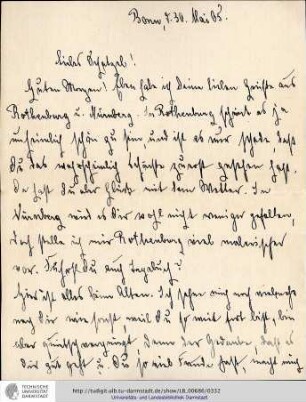 Bonn, d. 30. Mai 05.
Liebes Schatzel!
Guten Morgen! Eben habe ich Deine lieben Grüsse aus
Rothenburg u. Nürnberg. In Rothenburg scheint es ja
unheimlich schön zu sein, und ist es nur schade, dass
Du das wahrscheinlich Schönste zuerst gesehen hast.
Da hast Du aber Glück mit dem Wetter. In
Nürnberg wird es Dir wohl nicht weniger gefallen,
doch stelle ich mir Rothenburg viel malerischer
vor. Führst Du auch Tagebuch?
Hier ist alles beim Alten. Ich sehne mich
nach Dir wie sonst, weil Du so weit fort bist, bin
aber vergnügt denn der Gedanke, dass es
Dir gut geht u. Du so viel Freude hast, macht mich
TECHNISCHE
UNIVERSITÄT
DARMSTADT
http://tudigit.ulb.tu-darmstadt.de/show/LB_00686/0332
Universitäts- und Landesbibliothek Darmstadt